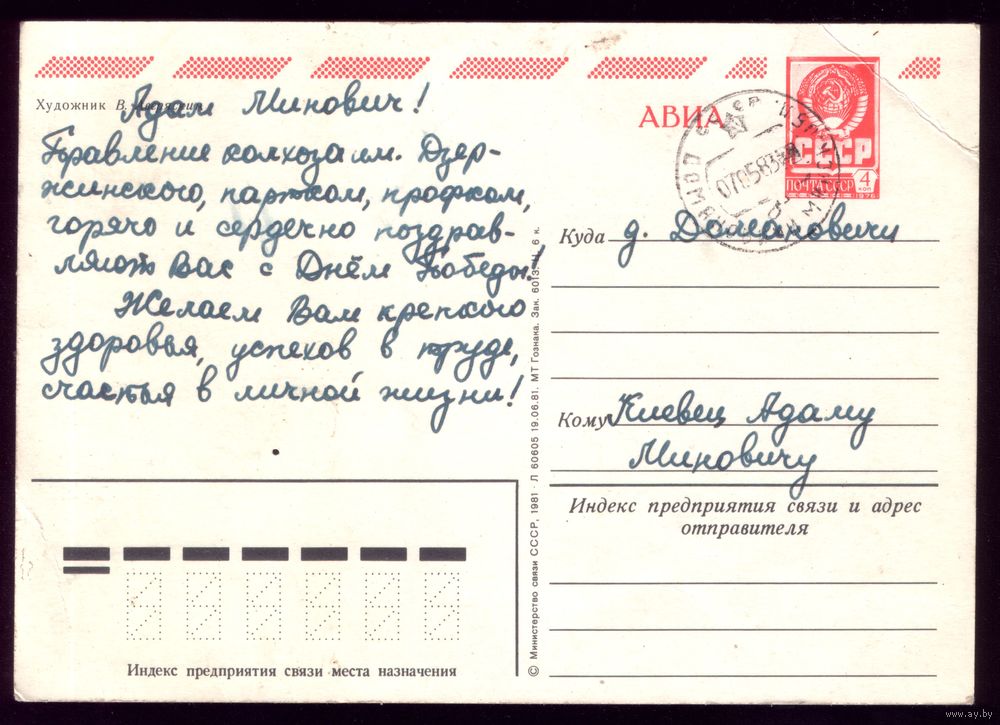 Художник В.
Адам Минович!
Правление колхоза им. Дзер-
жинского, партком, профком,
горячо и сердечно поздрав-
ляют Вас с Днём Победы!
Желаем Вам крепкого
здоровья, успехов в труде,
счастья в личной жизни!
Индекс предприятия связи места назначения
© Министерство связи СССР, 1981 · Л 60605 19.06.81. МТ Гознака. Зак. 6013. Ц. 6 к.
АВИА
СССР
ПОЧТА СССР
4
КОП
1976
070583
Куда д. Домановичи
Кому Киевец Адаму
Миновичу
Индекс предприятия связи и адрес
отправителя
www.ay.by